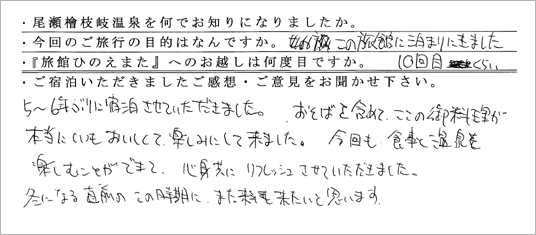 ・尾瀬檜枝岐温泉を何でお知りになりましたか。
・今回のご旅行の目的はなんですか。この旅館に泊まりにきました
・『旅館ひのえまた』へのお越しは何度目ですか。10回目くらい
・ご宿泊いただきましたご感想・ご意見をお聞かせ下さい。
5～6年ぶりに宿泊させていただきました。おそばを含めて、ここの御料理が
本当にいつもおいしくて、楽しみにして来ました。今回も、食事と温泉を
楽しむことができて、心身共にリフレッシュさせていただきました。
冬になる直前のこの時期に、また来年も来たいと思います。